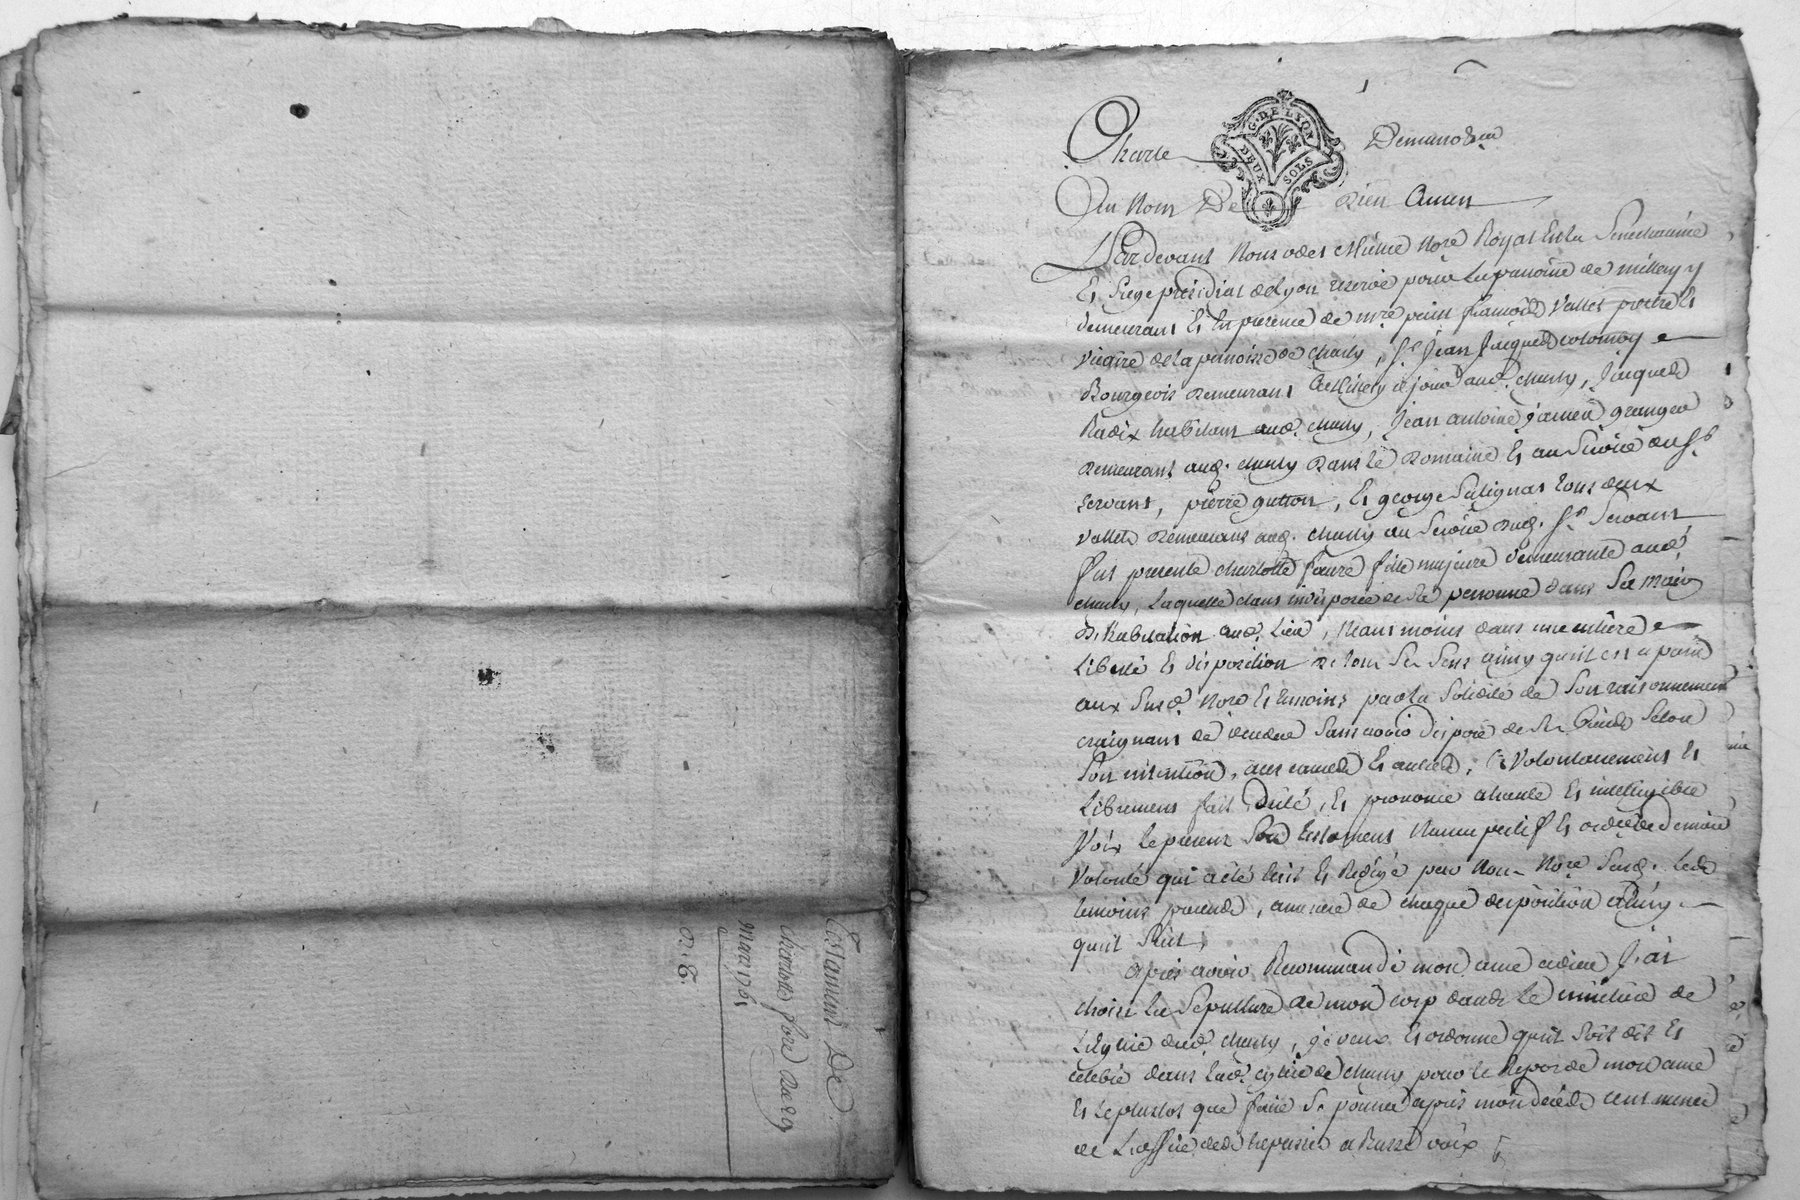 Testament De
charlotte fore du 29
mars 1761
D. E.
Charle Demanoder
G. DE LYON
DEUX SOLS
Au Nom De Dieu Amen
Pardevant Nous odet Methie Nore Royal En la Senechaussée
Et Siege presidial de Lyon reservé pour La paroisse de millery y
demeurant Et En presence de mre françois Vallet pretre Et
Vicaire de la paroisse de charly, Sr Jean Jacques colomby
Bourgeois demeurant a Millery ce jour aud. charly, Jacques
Radix habitant aud. charly, Jean antoine granger
demeurant aud. charly dans le domaine Et au Service du Sr
Servant, pierre gutton, Et george Salignat tous deux
vallets demeurans aud. charly au Service dud. Sr Servant,
fut presente charlotte faure fille majeure demeurante aud.
charly, Laquelle etant indisposée de Sa personne dans Sa maison
D'habitation aud. Lieu, Neanmoins dans une entiere
Liberté Et disposition de tous Ses Sens ainsy quil est aparu
aux Susd. Nore Et temoins par la Solidité de Son raisonnement
craignant de deceder Sans avoir disposé de Ses Biens Selon
Son intention, a Volontairement Et
Librement fait, dicté, Et prononcé a haute Et intelligible
Voix le present Son testament Nuncupatif Et ordre de derniere
Volonté qui a été Ecrit Et Redigé par Nous Nore Susd. Lesd.
temoins presents, a mesure de chaque disposition ainsy
quil Suit,
Apres avoir Recommandé mon ame a dieu J'ai
choisi la Sepulture de mon corp dans le cimetiere de
L'eglise dud. charly, je veux Et ordonne quil Soit dit Et
celebré dans lad. eglise de charly pour le Repos de mon ame
Et le plustot que faire Se pourra apres mon décéds cent messes
de L'office des trepassés a Basse voix